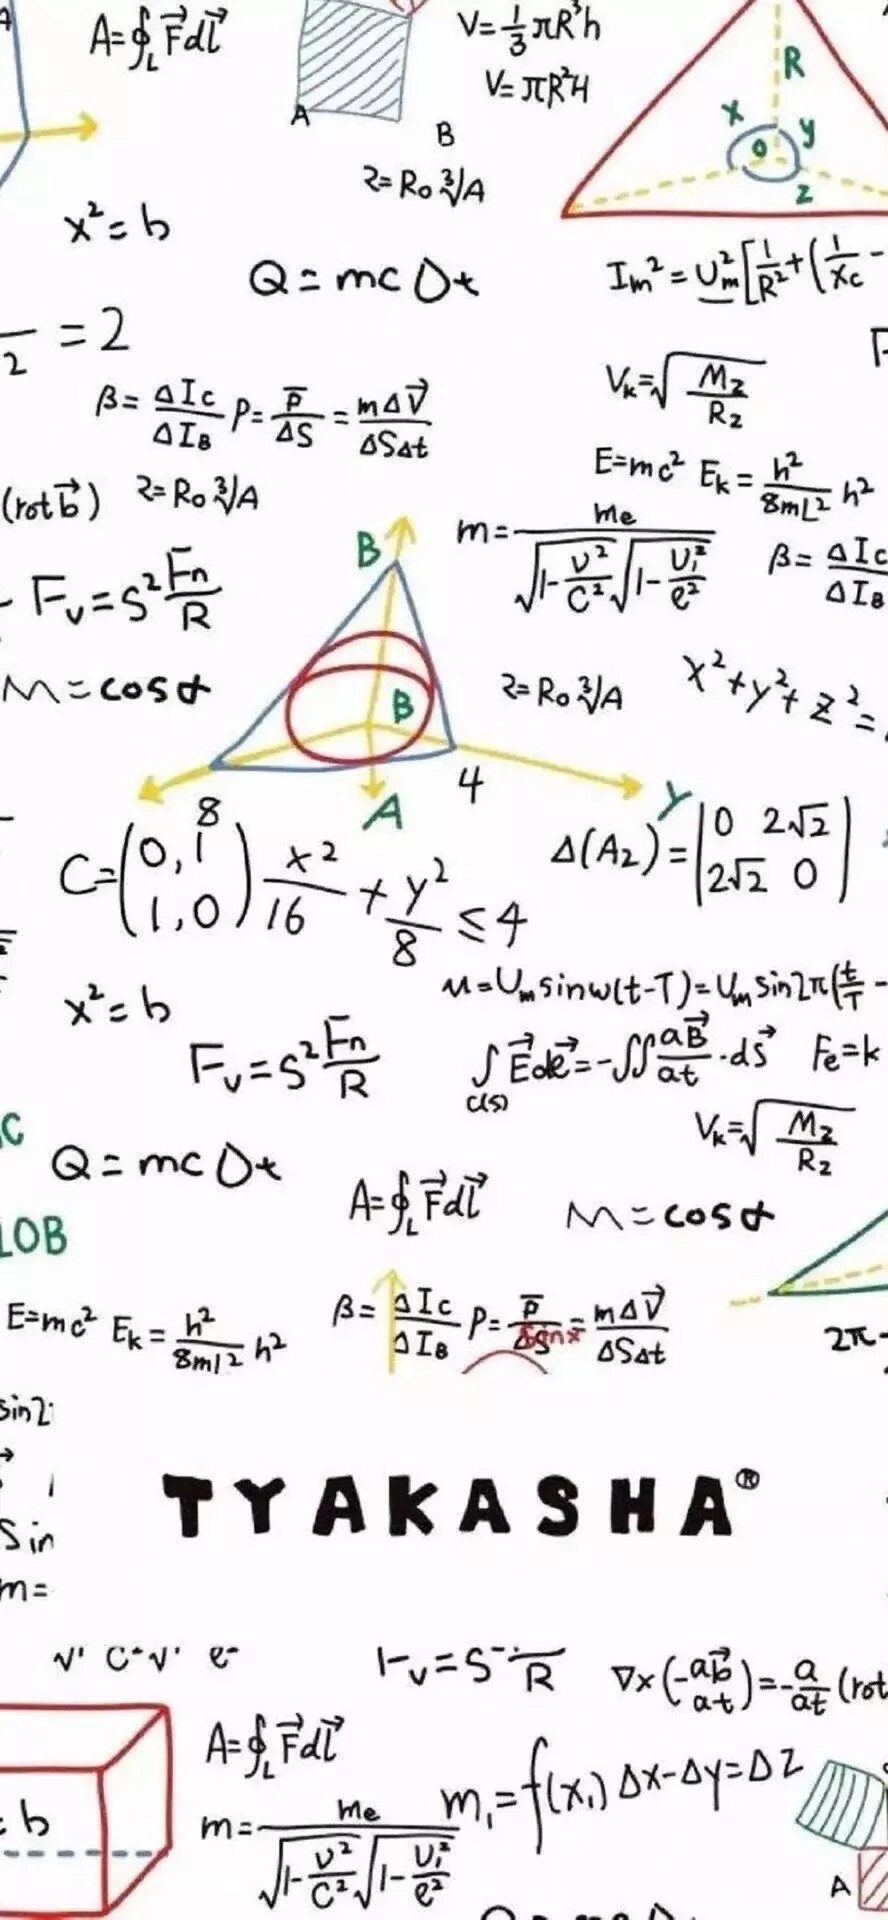 A
A=∮_L F⃗dl⃗
V=1/3 πR³h
V=πR²H
A
B
R
X
y
0
z
r=R₀∛A
x²=b
Q=mcΔt
Iₘ²=Uₘ²[1/R²+(1/Xc-
2 =2
Vₖ=√(M_z/R_z)
β=ΔIc/ΔI_B P=p̅/ΔS=mΔV⃗/ΔSΔt
E=mc² Eₖ=h²/8mL² h²
(rot b⃗) r=R₀∛A
m=mₑ/√(1-v²/c²)√(1-U₁²/e²)
β=ΔIc/ΔI_B
B
Fᵥ=S²Fₙ/R
M=cosα
B
r=R₀∛A
x²+y²+z²=
8
A
4
Y
C=(0,1 1,0) x²/16+y²/8≤4
Δ(A₂)=|0 2√2 2√2 0|
x²=b
u=Uₘsinw(t-T)=Uₘsin2π(t/T-
Fᵥ=S²Fₙ/R
∫c(s) E⃗dl⃗=-∬aB⃗/at·dS⃗ Fe=k
C
Vₖ=√(M_z/R_z)
Q=mcΔt
A=∮_L F⃗dl⃗
M=cosα
LOB
E=mc² Eₖ=h²/8ml² h²
β=ΔIc/ΔI_B P=p̅/ΔS=mΔV⃗/ΔSΔt
2π-
sin2
Sin
m=
TYAKASHA®
Fᵥ=S R
∇x(-ab⃗/at)=-a/at(rot
A=∮_L F⃗dl⃗
m₁=f(x₁)Δx-Δy=ΔZ
=b
m=mₑ/√(1-v²/c²)√(1-U₁²/e²)
A